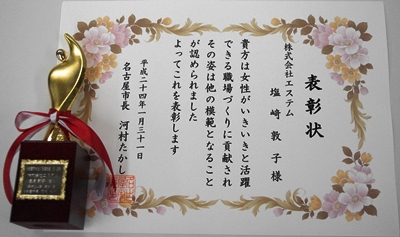 表彰状
株式会社エステム
塩崎敦子様
貴方は女性がいきいきと活躍
できる職場づくりに貢献され
その姿は他の模範となること
が認められました
よってこれを表彰します
平成二十四年一月三十一日
名古屋市長 河村たかし